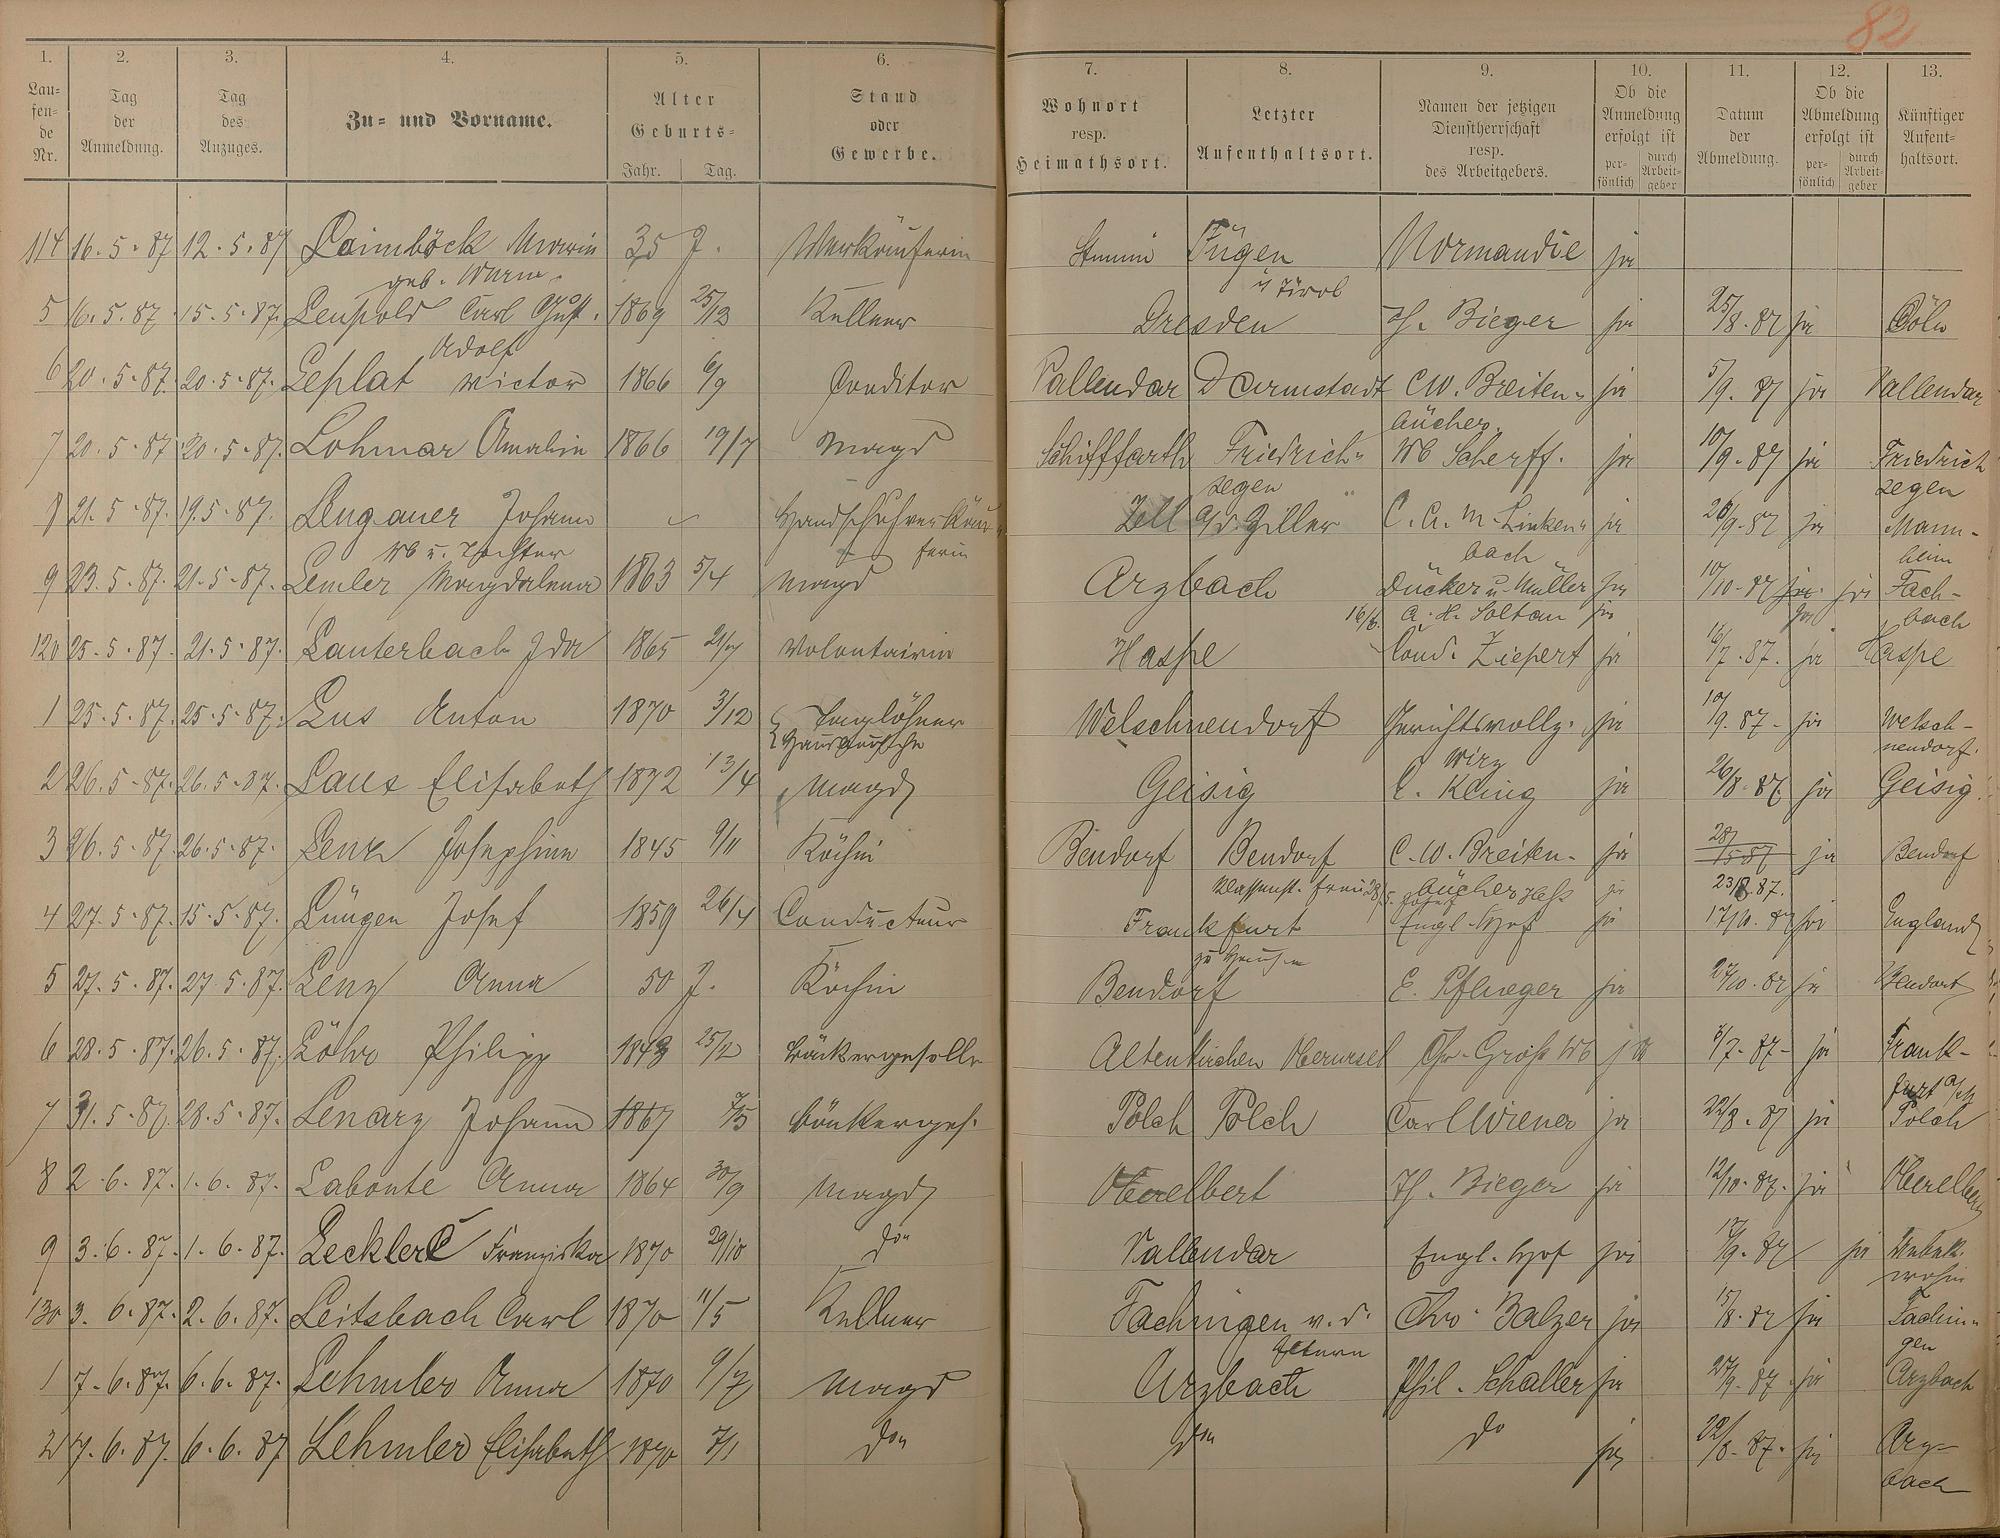 82
1. 2. 3. 4. 5. 6. 7. 8. 9. 10. 11. 12. 13.
Laufende Nr. Tag der Anmeldung. Tag des Anzuges. Zu- und Vorname. Alter Geburts- Jahr. Tag. Stand oder Gewerbe. Wohnort resp. Heimathsort. Letzter Aufenthaltsort. Namen der jetzigen Dienstherrschaft resp. des Arbeitgebers. Ob die Anmeldung erfolgt ist persönlich durch Arbeitgeber Datum der Abmeldung. Ob die Abmeldung erfolgt ist persönlich durch Arbeitgeber Künftiger Aufenthaltsort.
114 16.5.87 12.5.87 Laimböck 35 J. Fügen Normandie ja
geb. i/ Tirol
5 16.5.87 15.5.87. Leupold Carl Gust. 1869 25/12 Kellner Dresden H. Bieger ja 25/8.87 ja Cöln
Adolf
6 20.5.87. 20.5.87. Leplat Victor 1866 6/9 Conditor Vallendar Darmstadt C.W. Breiten- ja 5/9.87 ja Vallendar
bücher.
7 20.5.87 20.5.87. Lohmar Amalie 1866 19/7 Magd Schifffarth Friedrich- Wb Scherff. ja 10/9.87 ja Friedrich
segen segen
8 21.5.87. 19.5.87. Lengauer Johann Handschuhverkäu- Zell a/d. Ziller C.A.M. Linken- ja 26/9.87 ja Mann-
Wb u. Tochter ferin bach heim
9 23.5.87. 21.5.87. Lemler Magdalena 1863 5/4 Magd Arzbach Dücker u. Müller ja 10/10.87 ja Fach-
16/6. A. H. Soltau ja bach
120 25.5.87. 21.5.87. Lauterbach Ida 1865 21/7 Volontairin Haspe Cond. Ziepert ja 16/7.87. ja Haspe
1 25.5.87. 25.5.87. Lus Anton 1870 3/12 Taglöhner Welschnendorf Gerichtsvollz. ja 10/9.87 ja Welsch-
Hausbursche Wirz nendorf.
2 26.5.87. 26.5.87. Laux Elisabeth 1872 13/4 Magd Geisig C. Kling ja 26/8.87. ja Geisig
3 26.5.87. 26.5.87. Lenz Josephine 1845 9/11 Köchin Bendorf Bendorf C.W. Breiten- ja 28/ 87 ja Bendorf
bücher ja 23/8.87.
4 27.5.87. 15.5.87. Lüngen Josef 1859 26/4 Conducteur Frankfurt Engl. Hof ja 17/10.87 ja England
zu Hause
5 27.5.87. 27.5.87. Lenz Anna 50 J. Köchin Bendorf E. Pflueger ja 27/10.87 ja Bendorf
6 28.5.87. 26.5.87. Löhr Philipp 1843 25/2 Bäckergeselle Altenkirchen Oberursel Chr. Groß Wb ja 8/7.87 ja Frank-
furt a/M
7 31.5.87. 28.5.87. Lenarz Johann 1867 7/5 Bäckerges. Polch Polch Carl Wiener ja 22/8.87 ja Polch
8 2.6.87. 1.6.87. Labonte Anna 1864 30/9 Magd Oberelbert H. Bieger ja 12/10.87. ja Oberelbert
9 3.6.87. 1.6.87. Leckler Franziska 1870 29/10 do Vallendar Engl. Hof ja 17/9.87 ja Unbek.
wohin
130 3.6.87. 2.6.87. Leitsbach Carl 1870 11/5 Kellner Fachingen v.d. Chr. Balzer ja 15/8.87 ja Fachin-
Eltern gen
1 7.6.87. 6.6.87. Lehmler Anna 1870 9/7 Magd Arzbach Phil. Schaller ja 27/9.87. ja Arzbach
2 7.6.87. 6.6.87 Lehmler Elisabeth 1870 7/1 do do do ja 22/8.87. ja Arz-
bach